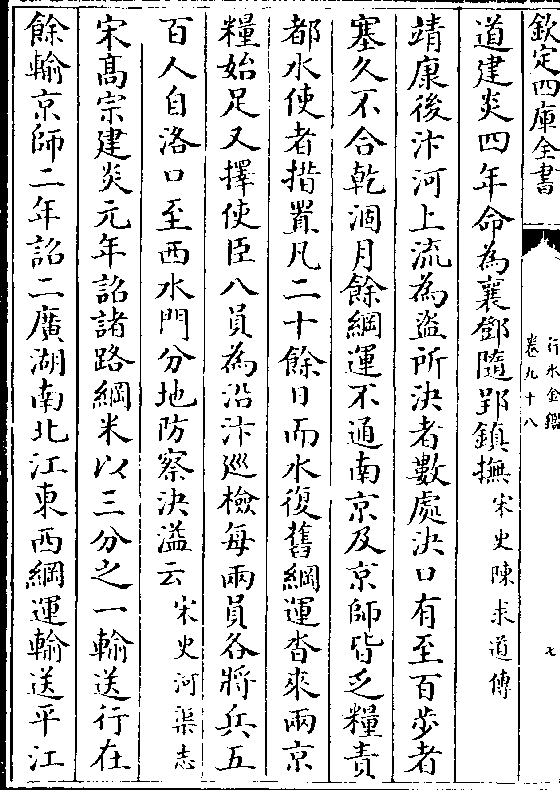 欽定四庫全書
行水金鑑
卷九十八
七
道建炎四年命為襄鄧隨郢鎮撫宋史陳求道傳
靖康後汴河上流為盜所決者數處決口有至百步者
塞久不合乾涸月餘綱運不通南京及京師皆乏糧責
都水使者措置凡二十餘日而水復舊綱運沓來兩京
糧始足又擇使臣八員為沿汴巡檢每兩員各將兵五
百人自洛口至西水門分地防察決溢云宋史河渠志
宋髙宗建炎元年詔諸路綱米以三分之一輸送行在
餘輸京師二年詔二廣湖南北江東西綱運輸送平江